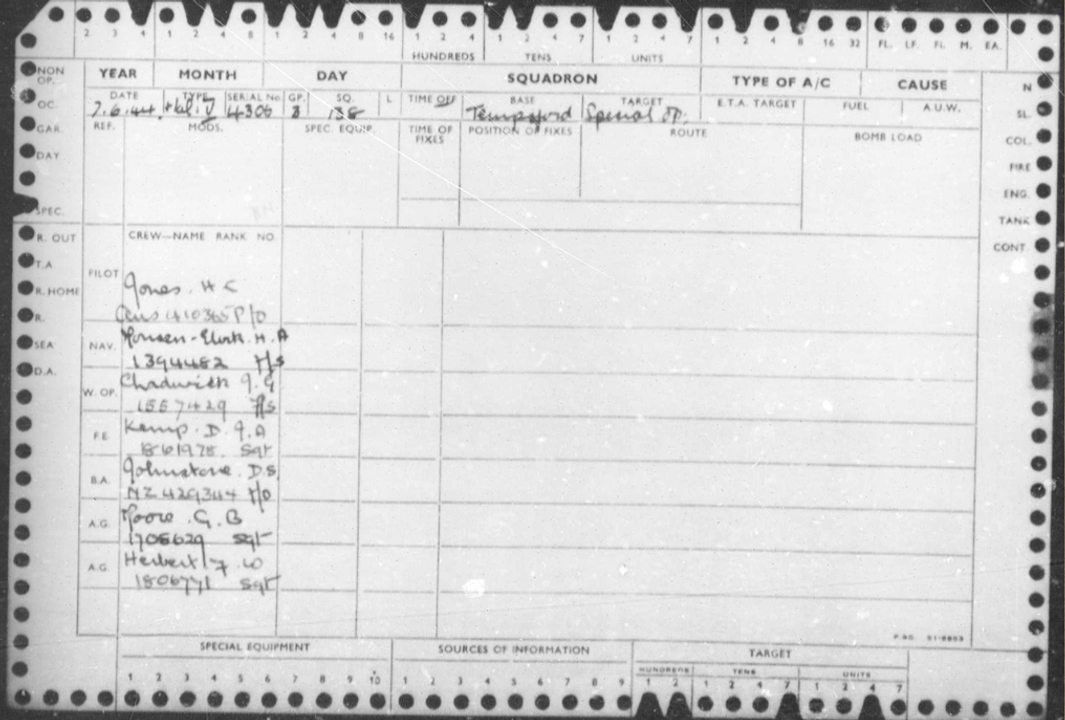 2 3 4 1 2 4 8 1 2 4 8 16 1 2 4 1 2 4 7 1 2 4 7 1 2 4 8 16 32 FL. LF. FI. M. EA.
HUNDREDS TENS UNITS
NON OP. YEAR MONTH DAY SQUADRON TYPE OF A/C CAUSE N
DATE TYPE SERIAL No. GP. SQ. L TIME OFF BASE TARGET E.T.A. TARGET FUEL A.U.W.
OC. 7.6.44. Hal. V 4306 3 138 Tempsford Special OP. SL.
GAR. REF. MODS. SPEC. EQUIP. TIME OF FIXES POSITION OF FIXES ROUTE BOMB LOAD COL.
DAY FIRE
ENG.
SPEC. TANK
R. OUT CREW—NAME RANK NO. CONT.
T.A
PILOT Jones. H C
R. HOME
R. Aus 410365 P/O
SEA NAV. H. A
D.A. 1394482 F/S
W. OP. Chadwick J. G
1557429 F/S
F.E. Kemp. D. J. A
1861978 Sgt
B.A. Johnstone. D.S.
NZ 429344 F/O
A.G. Moore. G. B
1705629 Sgt
A.G. Herbert F. W
1806771 Sgt
SPECIAL EQUIPMENT SOURCES OF INFORMATION TARGET
HUNDREDS TENS UNITS
1 2 3 4 5 6 7 8 9 10 1 2 3 4 5 6 7 8 9 1 2 1 2 4 7 1 2 4 7